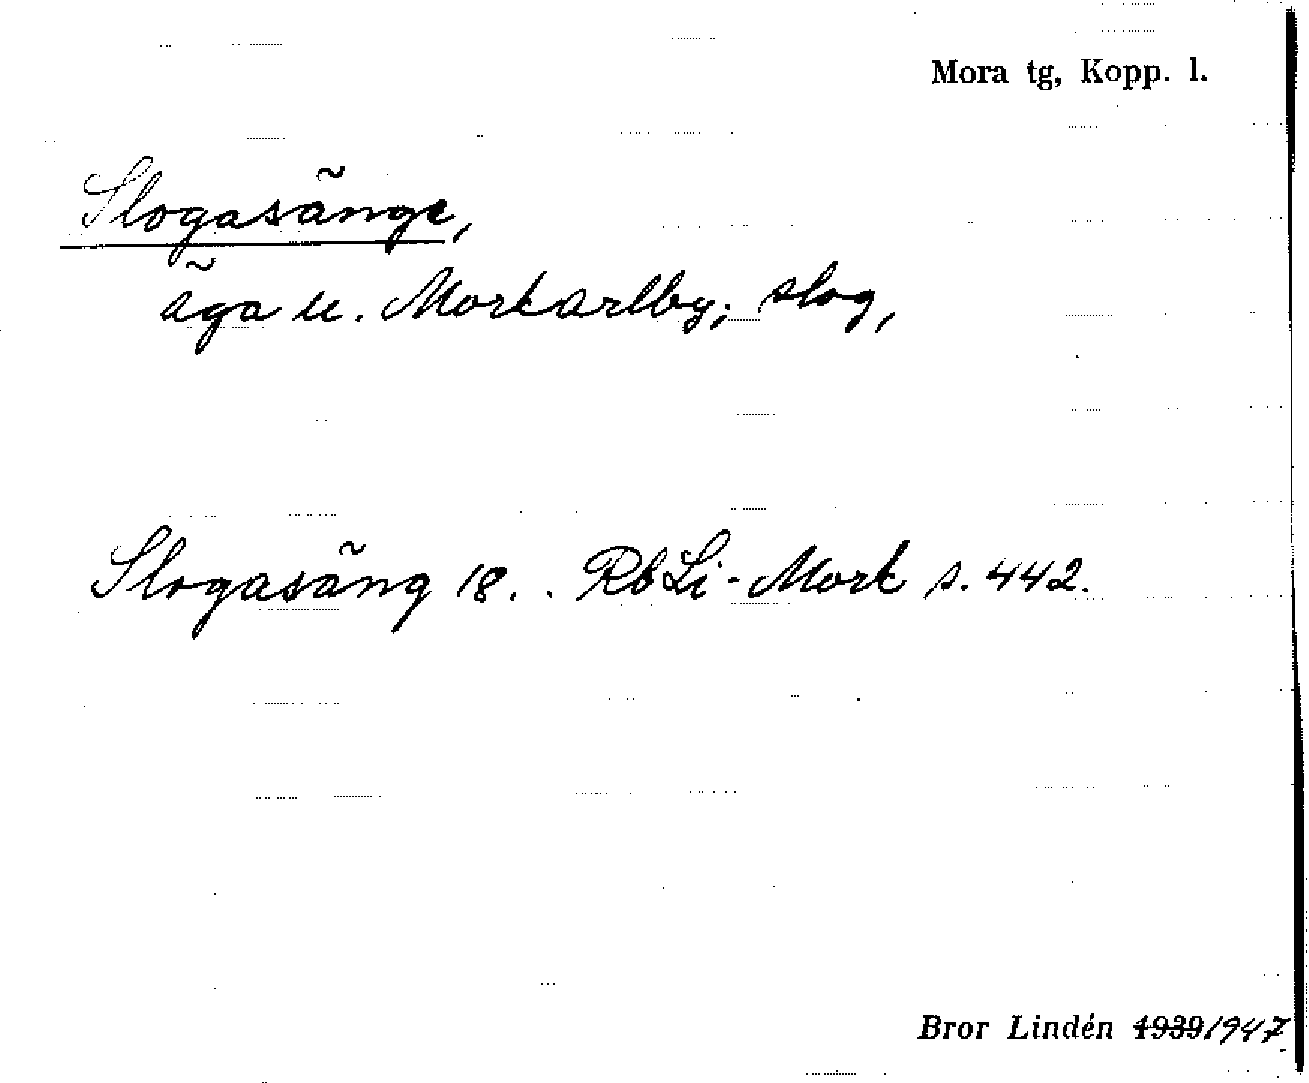 Mora tg, Kopp. l.
Slogasänge,
äga u. Morkarlby; slog,
Slogasäng 18. . Rb Li-Mork s. 442.
Bror Lindén 1939 1947